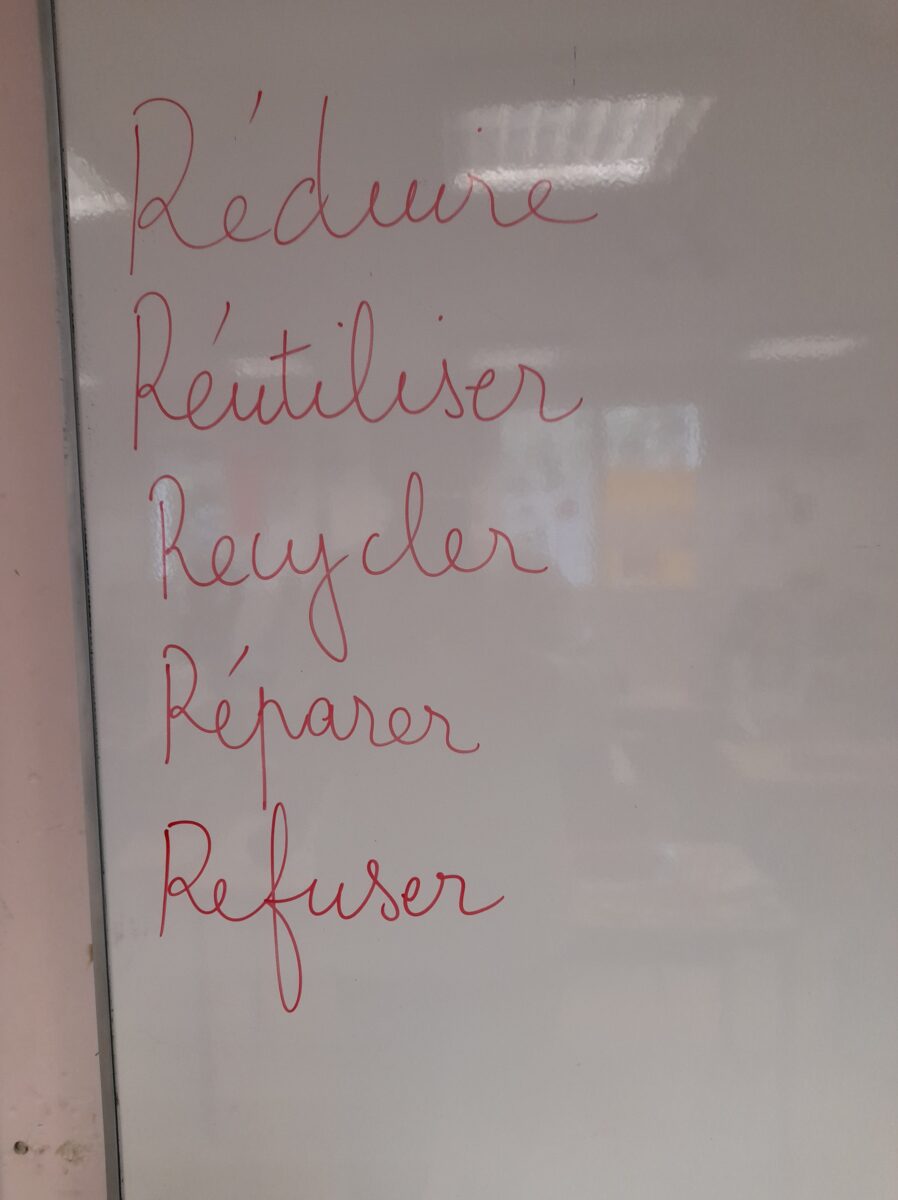 Réduire
Réutiliser
Recycler
Réparer
Refuser